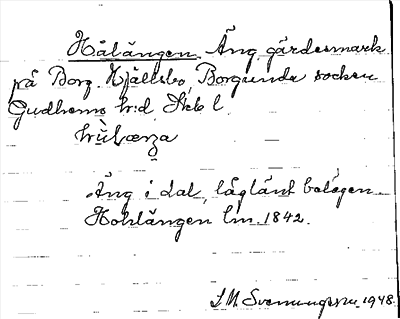 Hålängen. Äng, gärdesmark
på Borg. Kjällsbo, Borgunda socken
Gudhems h:d Skb l.
Äng i dal, lågländt belägen.
Hohlängen lm. 1842.
S M Svenungsson 1948